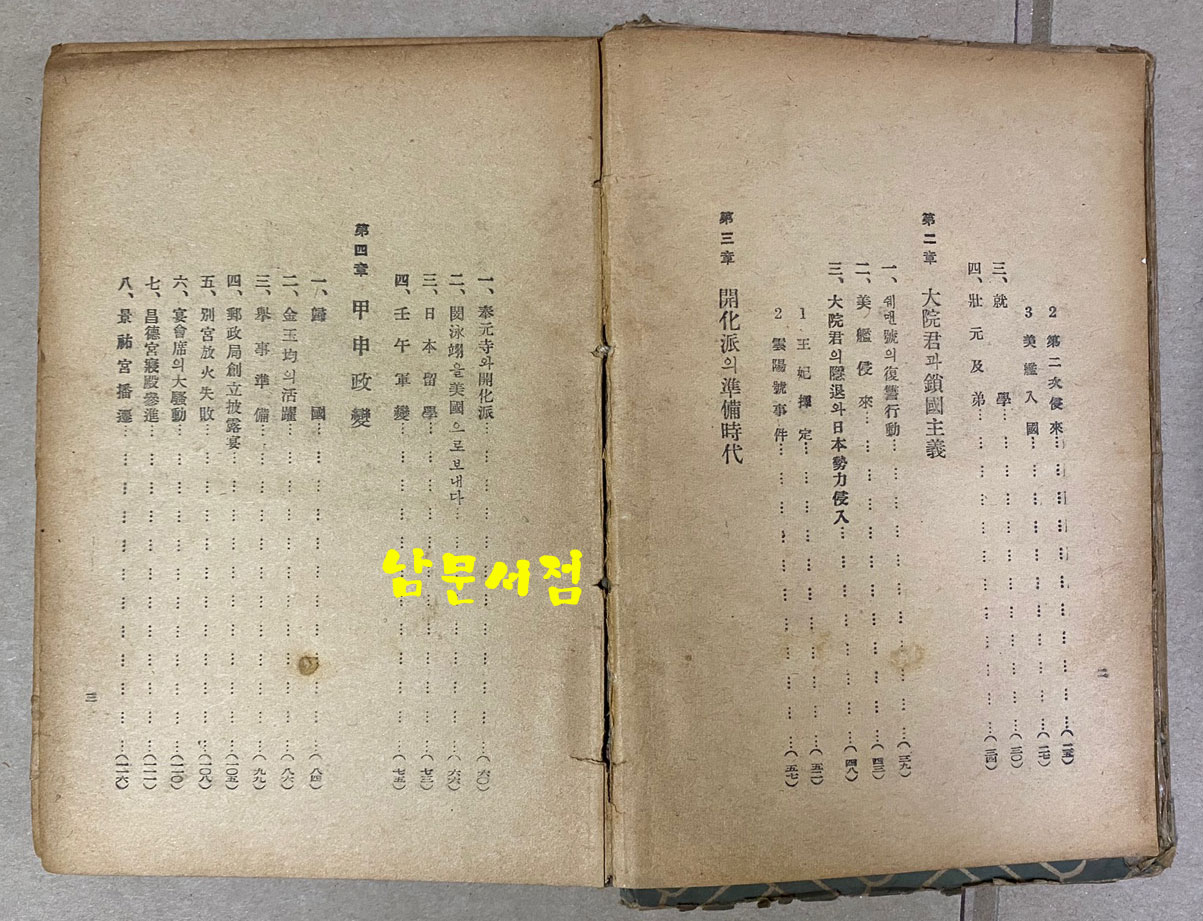 2 第二次侵來………………………………(二五)
3 美艦入國………………………………(二七)
三、就學………………………………(三〇)
四、壯元及弟………………………………(三四)
第二章 大院君과鎖國主義
一、쉐맨號의復讐行動………………………………(三九)
二、美艦侵來………………………………(四三)
三、大院君의隱退와日本勢力侵入………………………………(四八)
1 王妃擇定………………………………(五二)
2 雲陽號事件………………………………(五七)
第三章 開化派의準備時代
二
一、奉元寺와開化派………………………………(六〇)
二、閔泳翊을美國으로보내다………………………………(六六)
三、日本留學………………………………(七三)
四、壬午軍變………………………………(七五)
第四章 甲申政變
一、歸國………………………………(八四)
二、金玉均의活躍………………………………(八六)
三、擧事準備………………………………(九九)
四、郵政局創立披露宴………………………………(一〇五)
五、別宮放火失敗………………………………(一〇八)
六、宴會席의大騷動………………………………(一一〇)
七、昌德宮寢殿參進………………………………(一一一)
八、景祐宮播遷………………………………(一一六)
三
남문서점